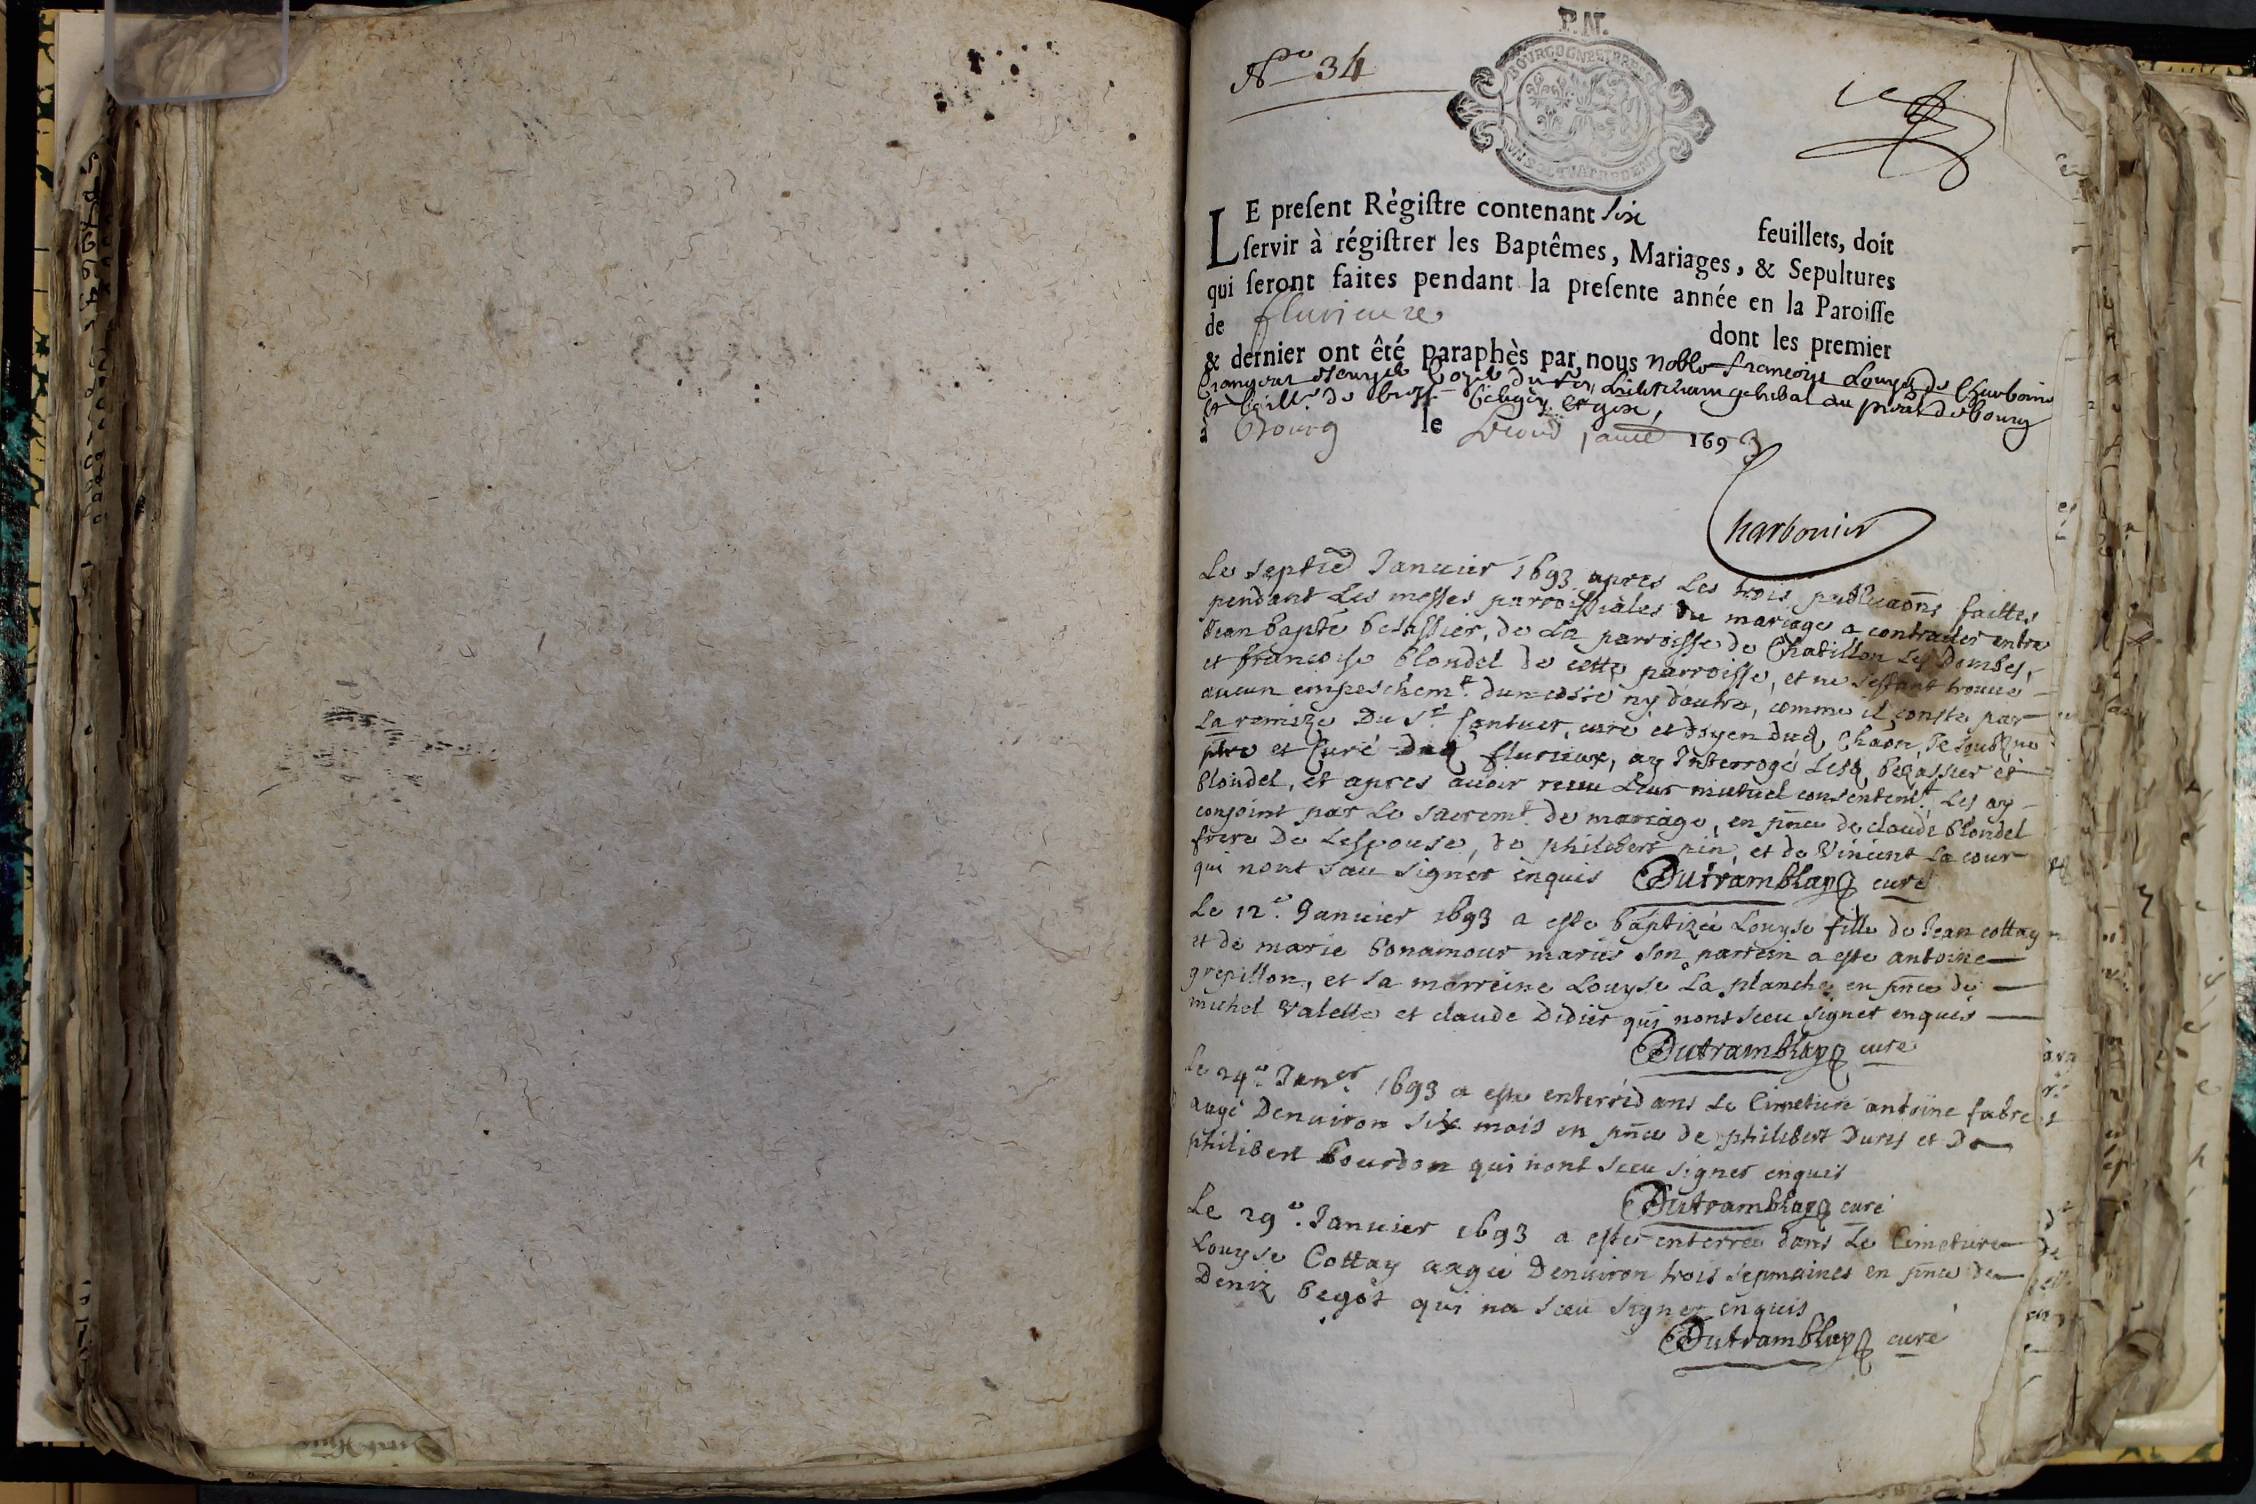 P.N.
No 34
BOURGOGNE ET BRESSE
UN SOL QUATRE DEN
LE present Règistre contenant six feuillets, doit
servir à régistrer les Baptêmes, Mariages, & Sepultures
qui seront faites pendant la presente année en la Paroisse
de flurieux dont les premier
& dernier ont êté paraphès par nous Noble françois Louys de Charbonnier
general au de bourg
à Bourg le Second janvé 1693
Charbonier
Le septie Januier 1693 apres Les trois publicaõns faittes
pendant Les messes parroissiales du mariage a contracter entre
Jean bapte besassier, de La parroisse de Chatillon Les Dombes,
et francoise blondel de cette parroisse, et ne sestant trouué
aucun empeschemt. dun costé ny dautre, comme il conste par
La remise Du Sr. fontuer, curé et doyen dud Chãon, Je soubzne
ptre et Curé dud flurieux, ay Interrogé Lesd, besassier et
blondel, et apres auoir receu Leur mutuel consentemt. Les ay
conjoint par Le sacremt. de mariage, en pñce de claude blondel
frere De Lespouse, de philibert pin, et de Vincent La cour
qui nont sceu signer enquis Dutramblay curé
Le 12e. Januier 1693 a esté baptizée Louyse fille de Jean cottay
et de marie bonamour mariés son parrein a esté antoine
grepillon, et sa marreine Louyse La planche en pñce de
michel Valette et claude Didier qui nont sceu signer enquis
Dutramblay curé
Le 24e. Janer. 1693 a esté enterré dans Le Cimetiere antoine fabre
aagé Denuiron six mois en pñce de philibert Durs et De
philibert bourdon qui nont sceu signer enquis
Dutramblay curé
Le 29e. Januier 1693 a esté enterrée dans Le Cimetiere
Louyse Cottay aagée Denuiron trois sepmaines en pñce de
Deniz begot qui na sceu signer enquis
Dutramblay curé